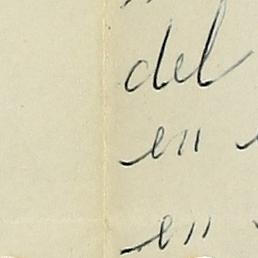 del
en
en